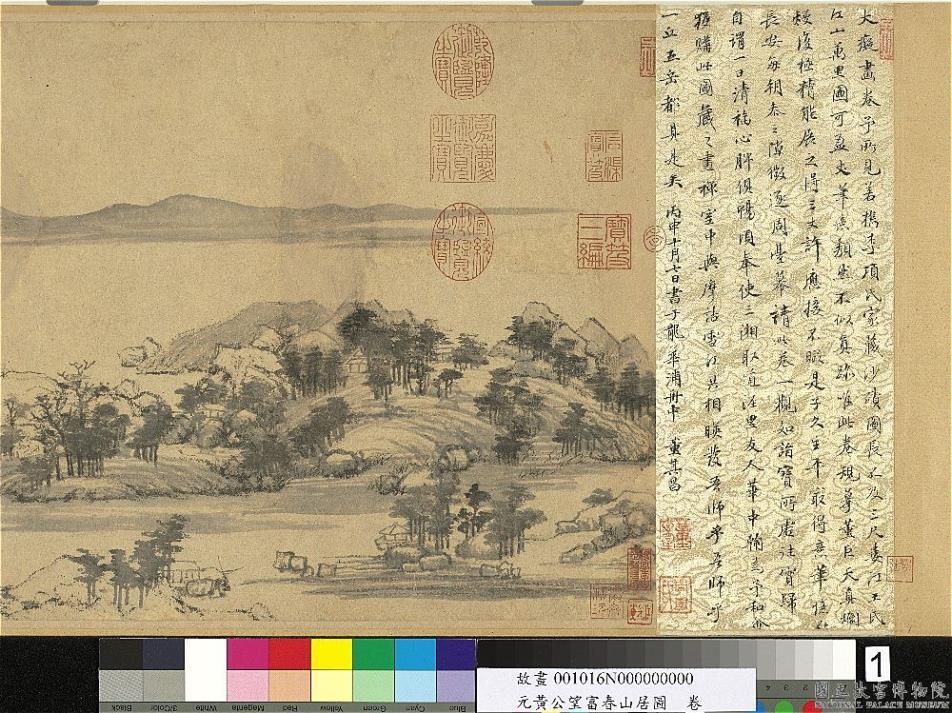 大癡畫卷予所見若檇李項氏家藏沙磧圖長不及三尺婁江王氏
江山萬里圖可盈丈筆意頹然不似真跡唯此卷規摹董巨天真爛
熳復極精能展之得三丈許應接不暇是子久生平最得意筆憶在
長安每朝參之隙徵逐周臺幕請此卷一觀如詣寶所虛往實歸
自謂一日清福心脾俱暢頃奉使三湘取道涇里友人華中翰為予和會
獲購此圖藏之畫禪室中與摩詰雪江共相映發吾師乎吾師乎
一丘五岳都具是矣丙申十月七日書于龍華浦舟中 董其昌
寶笈三編
石渠寶笈
乾隆御覽之寶
嘉慶御覽之寶
宣統御覽之寶
Black
3/Color
White
Magenta
Red
Yellow
Green
Cyan
Blue
故畫 001016N000000000
元黃公望富春山居圖 卷
1
國立故宮博物院
NATIONAL PALACE MUSEUM